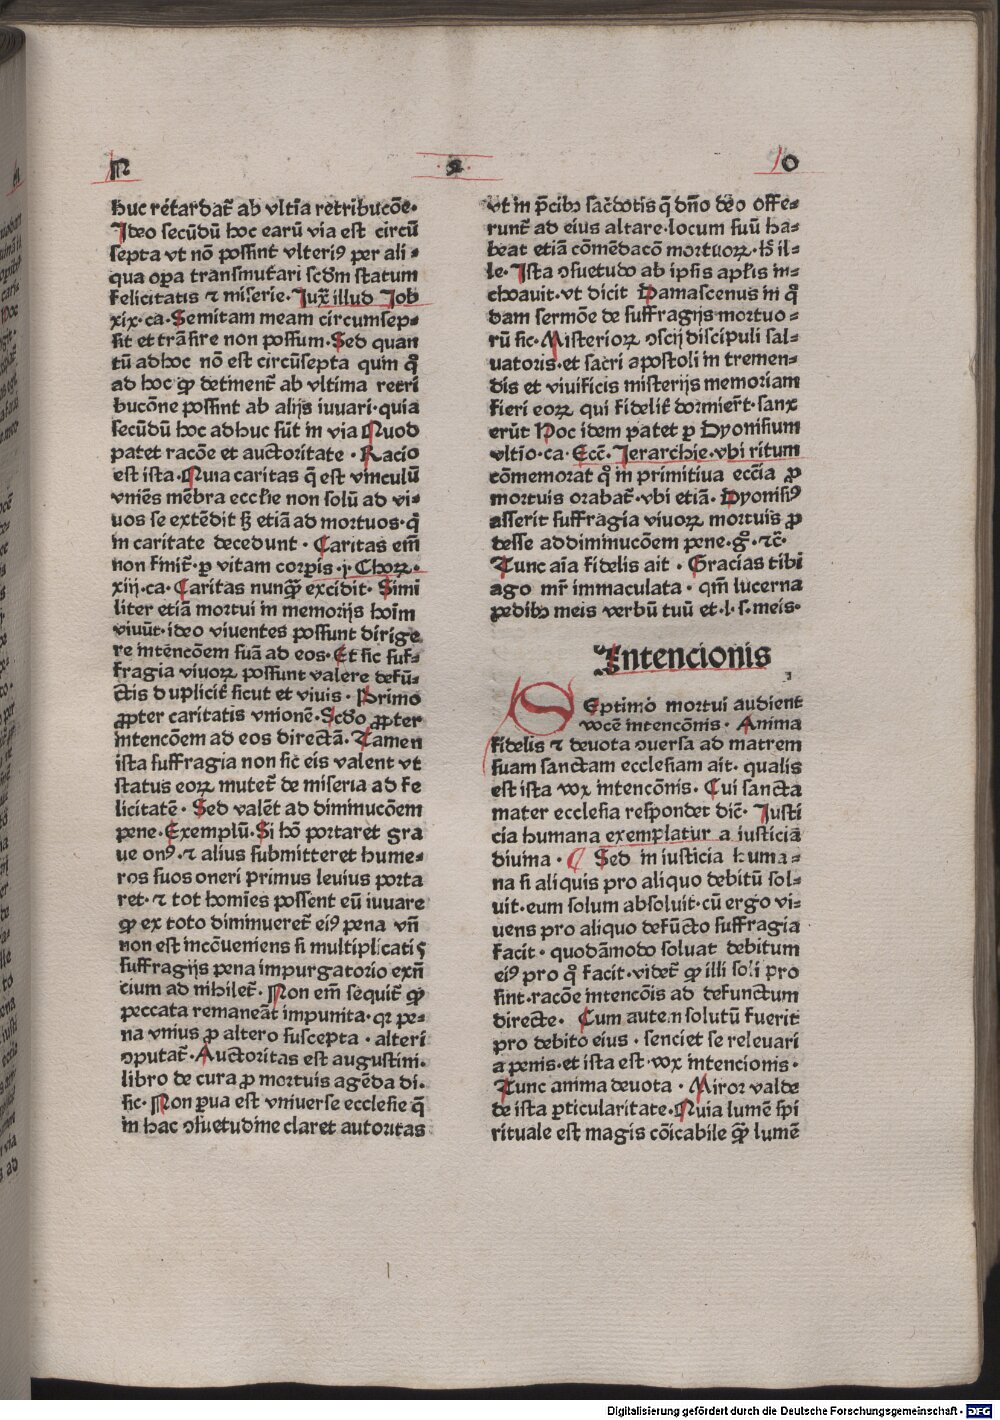 N
2
O
huc retardat̃ ab vltia retribucõe·
Ideo secũdũ hoc earũ via est circũ
septa vt nõ possint vlteriꝰ per ali⸗
qua oꝑa transmutari scdm̃ statum
felicitatis ⁊ miserie· Iux̃ illud Iob
xix· ca· Semitam meam circumsep⸗
sit et trãsire non possum· Sed quan
tũ adhoc nõ est circũsepta quin q̊
ad hoc ꝙ detinent̃ ab vltima retri
bucõne possint ab alijs iuuari· quia
secũdũ hoc adhuc sũt in via Quod
patet racõe et auctoritate · Racio
est ista· Quia caritas q̃ est vinculũ
vniẽs mẽbra ecclie non solũ ad vi⸗
uos se extẽdit sꝫ etiã ad mortuos· q̊
in caritate decedunt · Caritas em̃
non finit̃· ꝑ vitam corꝑis · j· Choꝝ·
xiij· ca· Caritas nunꝙ̃ excidit· Simi
liter etiã mortui in memorijs hoĩm
viuũt· ideo viuentes possunt dirige
re intencõem suã ad eos· Et sic suf⸗
fragia viuoꝝ possunt valere defũ⸗
ctis dupliciť sicut et viuis · Primo
ꝓpter caritatis vnionẽ· Scdo ꝓpter
intencõem ad eos directã· Tamen
ista suffragia non sic eis valent vt
status eoꝝ mutet̃ de miseria ad fe
licitatẽ· Sed valẽt ad diminucõem
pene· Exemplũ· Si hõ portaret gra
ue onꝰ· ⁊ alius submitteret hume⸗
ros suos oneri primus leuius porta
ret· ⁊ tot homies possent eũ iuuare
ꝙ ex toto diminueret̃ eiꝰ pena vñ
non est incõueniens si multiplicatis
suffragijs pena impurgatorio exñ
cium ad nihilet̃· Non em̃ sequit̃ ꝙ
peccata remaneãt impunita· qꝛ pe⸗
na vnius ꝓ altero suscepta · alteri
ↄputat̃· Auctoritas est augustini·
libro de cura ꝓ mortuis agẽda di·
sic· Non ꝑua est vniuerse ecclesie q̃
in hac ↄsuetudine claret autoritas
vt in p̃cibꝫ sac̃dotis q̃ dño deo offe⸗
runt̃ ad eius altare· locum suũ ha⸗
beat etiã cõmẽdacõ mortuoꝝ· hͦ il⸗
le· Ista ↄsuetudo ab ipsis aplis in⸗
choauit· vt dicit Damascenus in q̊
dam sermõe de suffragijs mortuo⸗
rũ sic· Misterioꝝ ↄscij discipuli sal⸗
uatoris· et sacri apostoli in tremen⸗
dis et viuificis misterijs memoriam
fieri eoꝝ qui fideliť dormier̃t· sanx
erũt Hoc idem patet ꝑ Dyonisium
vltio· ca· Ecc̃· Ierarchie· vbi ritum
cõmemorat q̊ in primitiua ecc̃ia ꝓ
mortuis orabat̃· vbi etiã· Dyonisiꝰ
asserit suffragia viuoꝝ mortuis ꝓ
desse addiminucõem pene· g̊· ⁊c̃·
Tunc aĩa fidelis ait · Gracias tibi
ago mr̃ immaculata · qm̃ lucerna
pedibꝫ meis verbũ tuũ et· l· s· meis·
Intencionis
SEptimo mortui audient
vocẽ intencõnis· Anima
fidelis ⁊ deuota ↄuersa ad matrem
suam sanctam ecclesiam ait· qualis
est ista vox intencõnis· Cui sancta
mater ecclesia respondet dic̃· Iusti
cia humana exemplatur a iusticia
diuina · Sed in iusticia huma⸗
na si aliquis pro aliquo debitũ sol⸗
uit· eum solum absoluit· cũ ergo vi⸗
uens pro aliquo defũcto suffragia
facit· quodãmodo soluat debitum
eiꝰ pro q̊ facit· videt̃ ꝙ illi soli pro
sint· racõe intencõis ad defunctum
directe· Cum autem solutũ fuerit
pro debito eius · senciet se releuari
a penis· et ista est· vox intencionis·
Tunc anima deuota · Miror valde
de ista ꝑticularitate· Quia lumẽ spi
rituale est magis cõicabile ꝙ̃ lumẽ
Digitalisierung gefördert durch die Deutsche Forschungsgemeinschaft - DFG